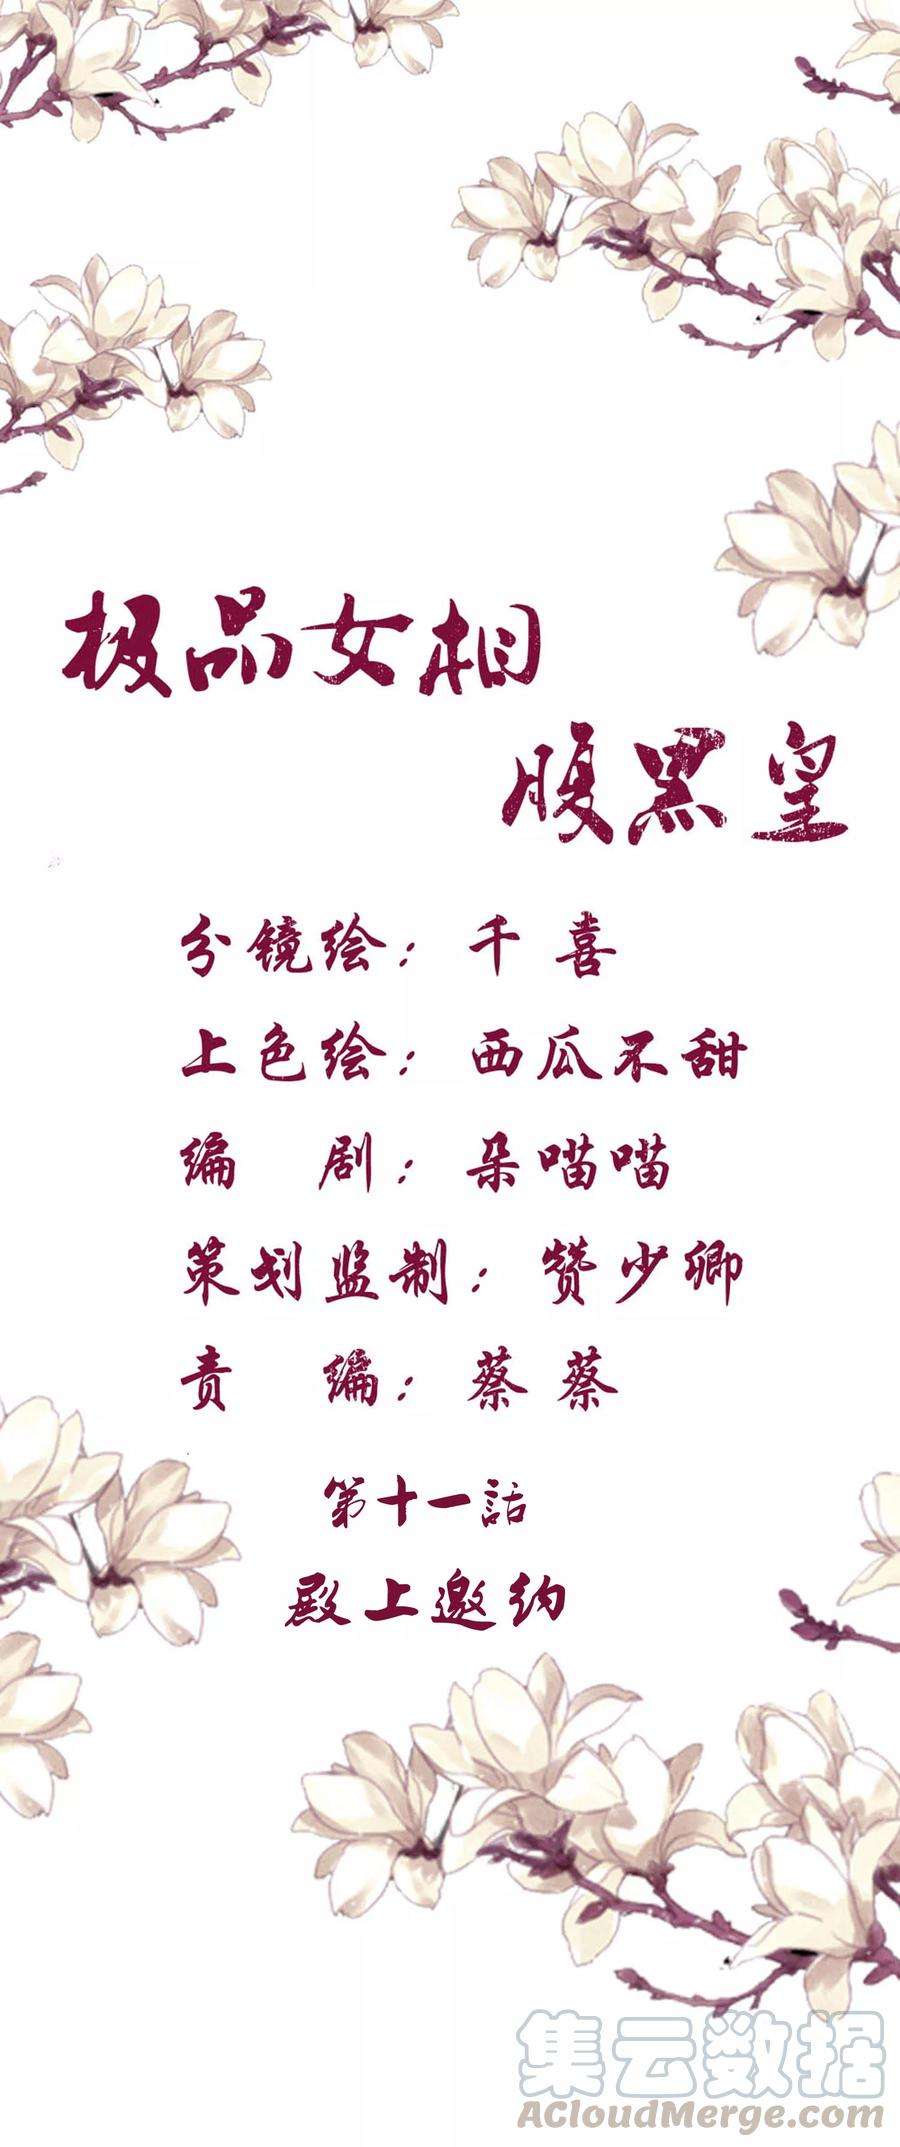 极品女相
腹黑皇
分镜绘：千喜
上色绘：西瓜不甜
编 剧：朵喵喵
策划监制：赞少卿
责 编：蔡蔡
第十一話
殿上邀约
集云数据
ACloudMerge.com